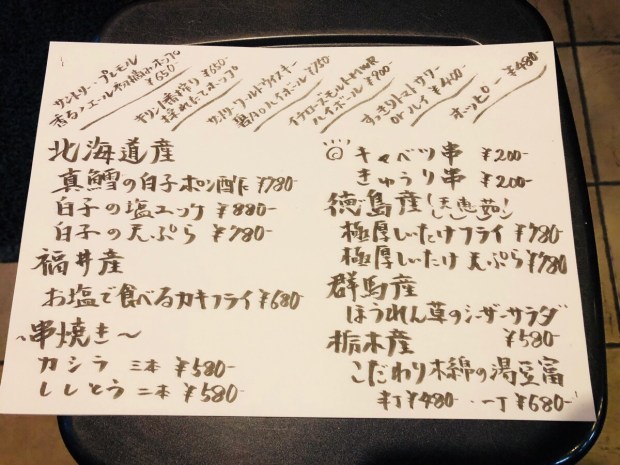 サントリープレモル
香るエール初摘みホップ
¥650
キリン一番搾り ¥650-
採れたてホップ
サントリーワールドウイスキー
碧Aoハイボール ¥720
イチローズモルトMWR
ハイボール ¥900-
すっきりトマトサワー
orハイ ¥400
ホッピー ¥480-
北海道産
真鱈の白子ポン酢 ¥780-
白子の塩ユッケ ¥880-
白子の天ぷら ¥780-
福井産
お塩で食べるカキフライ ¥680-
串焼き〜
カシラ 三本 ¥580-
ししとう 二本 ¥580-
◎ キャベツ串 ¥200-
きゅうり串 ¥200-
徳島産 (天恵茹!)
極厚しいたけフライ ¥780-
極厚しいたけ天ぷら ¥780
群馬産
ほうれん草のシーザーサラダ
¥580-
栃木産
こだわり木綿の湯豆富
半丁¥480-・一丁¥680-